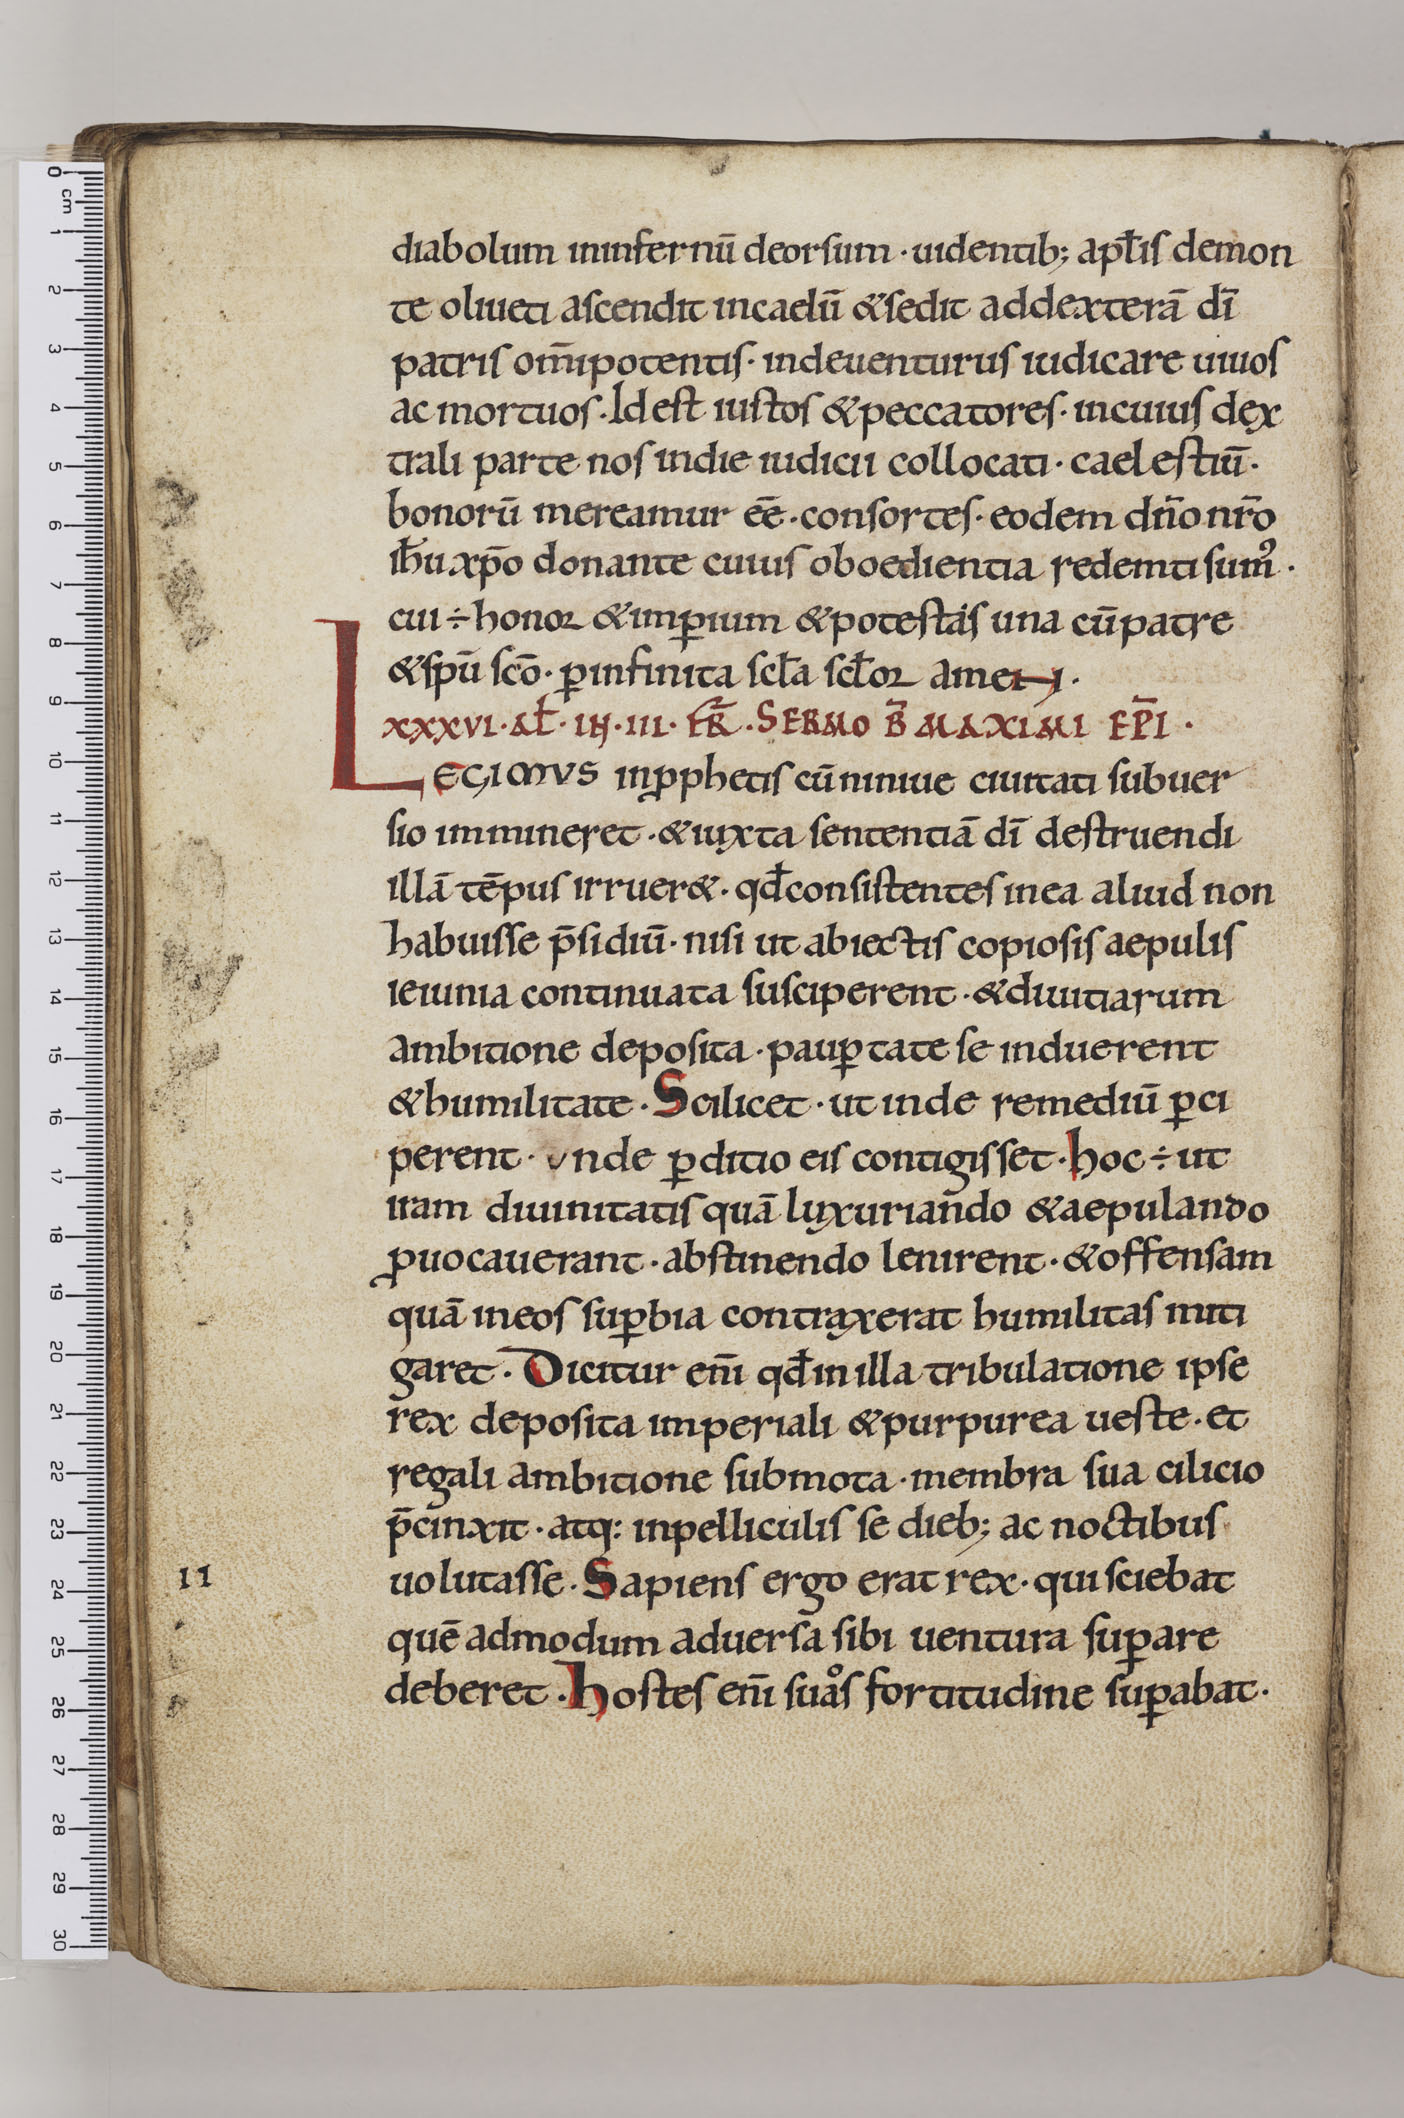 diabolum ininfernū deorsum · uidentib; apl̄is demon
te oliueti ascendit incaelū &sedit addexterā dī
patris om̄ipotentis · indeuenturus iudicare uiuos
ac mortuos · Id est iustos &peccatores · incuius dex
trali parte nos indie iudicii collocati · caelestiū ·
bonorū mereamur eē · consortes · eodem dn̄o nr̄o
ih̄u xp̄o donante cuius oboedientia redemti sumꝰ ·
cui ÷ honor &imꝑium &potestas una cū patre
&sp̄u sc̄o · ꝑinfinita scl̄a scl̄oꝝ amen ·
LXXXVI · AL̄ · IN · III · FR̄ · SERMO B̄ MAXIMI EP̄I ·
LEGIMVS inꝓphetis cū niniue ciuitati subuer
sio immineret · &iuxta sententiā dī destruendi
illā tēpus irruer& · qd̄ consistentes inea aliud non
habuisse p̄sidiū · nisi ut abiectis copiosis aepulis
ieiunia continuata susciperent · &diuitiarum
ambitione deposita · pauꝑtate se induerent
&humilitate · Scilicet · ut inde remediū ꝑci
perent · vnde ꝑditio eis contigisset · hoc ÷ ut
iram diuinitatis quā luxuriando &aepulando
ꝓuocauerant · abstinendo lenirent · &offensam
quā ineos suꝑbia contraxerat humilitas miti
garet · Dicitur eni̅ qd̄ in illa tribulatione ipse
rex deposita imperiali &purpurea ueste · et
regali ambitione submota · membra sua cilicio
p̄cinxit · atq: inpelliculis se dieb; ac noctibus
uolutasse · Sapiens ergo erat rex · qui sciebat
11
quē admodum aduersa sibi uentura suꝑare
deberet · hostes eni̅ suos fortitudine suꝑabat ·
0
cm
1
2
3
4
5
6
7
8
9
10
11
12
13
14
15
16
17
18
19
20
21
22
23
24
25
26
27
28
29
30